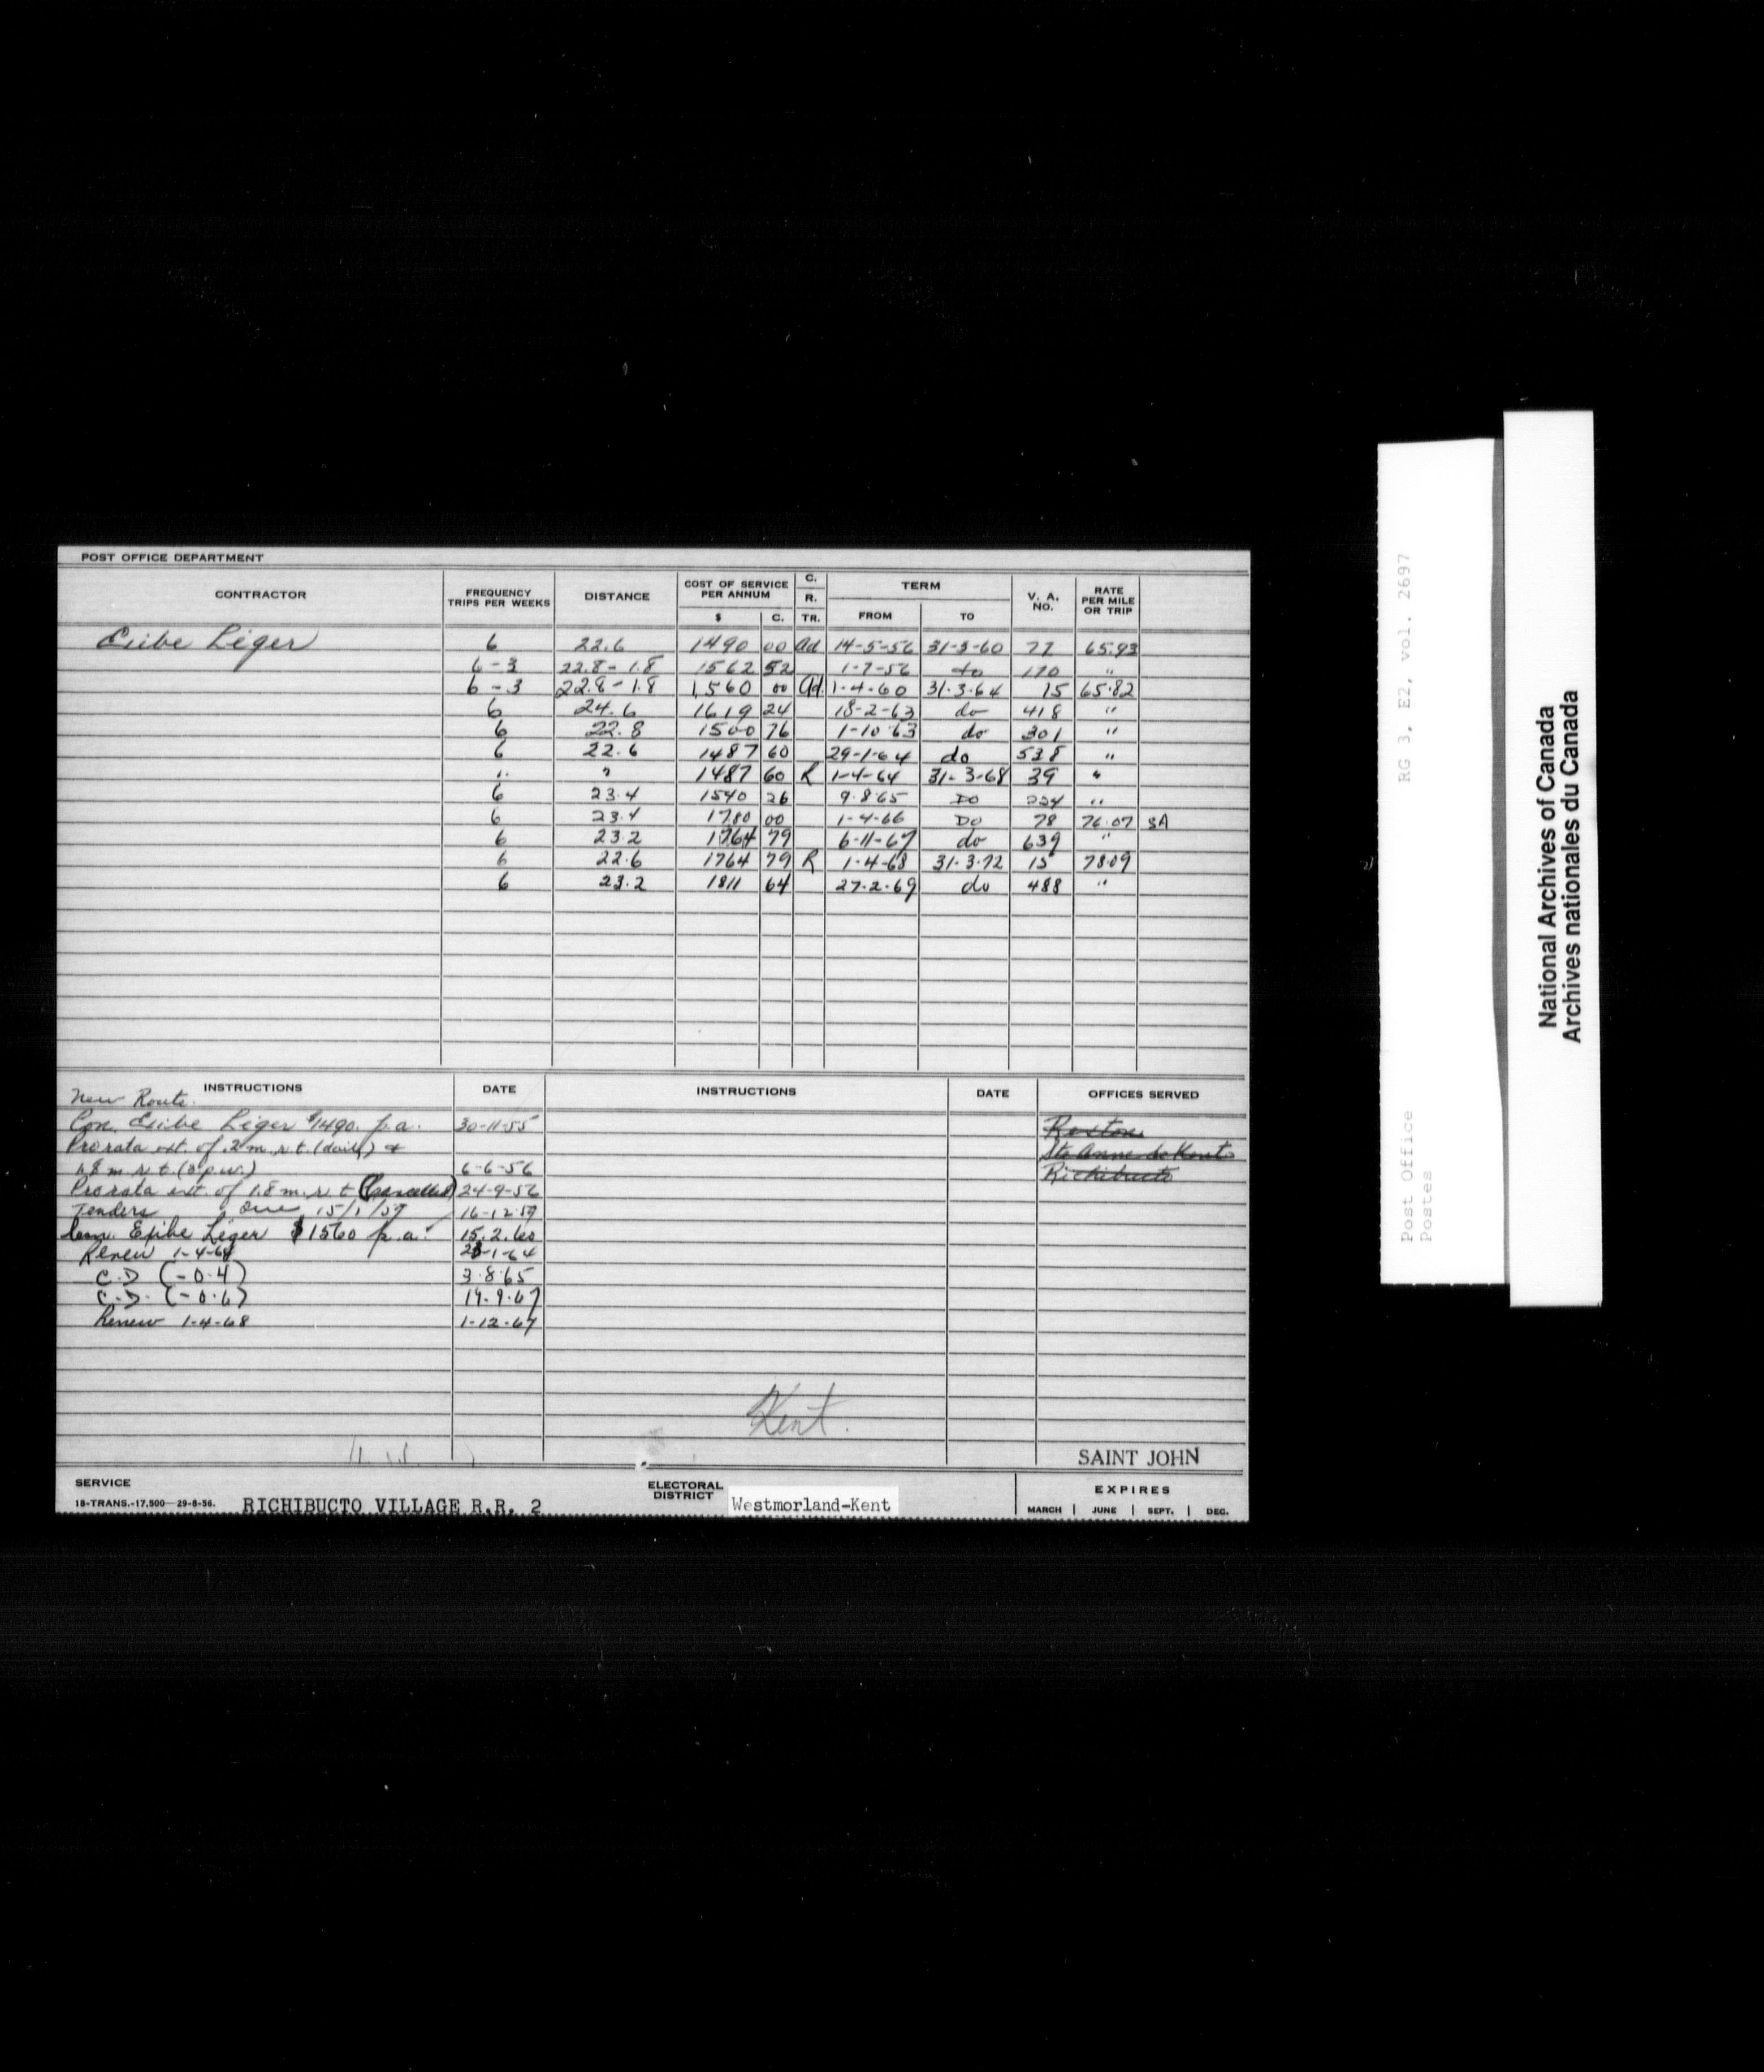 POST OFFICE DEPARTMENT
CONTRACTOR FREQUENCY TRIPS PER WEEKS DISTANCE COST OF SERVICE PER ANNUM $ C. C. R. TR. TERM FROM TO V. A. NO. RATE PER MILE OR TRIP
Léger 6 22.6 1490 00 Ad 14-5-56 31-3-60 77 65.93
6-3 22.8-1.8 1562 52 1-7-56 do 170 "
6-3 22.8-1.8 1,560 00 Ad. 1-4-60 31.3.64 15 65.82
6 24.6 1619 24 18-2-63 do 418 "
6 22.8 1500 76 1-10-63 do 301 "
6 22.6 1487 60 29-1-64 do 538 "
" " 1487 60 R 1-4-64 31-3-68 39 "
6 23.4 1540 26 9.8.65 DO 224 "
6 23.4 1780 00 1-4-66 DO 78 76.07 SA
6 23.2 1764 79 6-11-67 do 639 "
6 22.6 1764 79 R 1-4-68 31.3.72 15 78.09
6 23.2 1811 64 27.2.69 do 488 "
INSTRUCTIONS DATE INSTRUCTIONS DATE OFFICES SERVED
New Route.
Con. Léger $1490. p.a. 30-11-55 Rexton
Prorata ext. of .2 m. r.t. (daily) & Ste Anne de Kent
1.8 m. r.t. (3 p.w.) 6-6-56 Richibucto
Prorata ext. of 1.8 m. r.t. (Cancelled) 24-9-56
Tenders due 15/1/59 16-12-59
Léger $1560 p.a. 15.2.60
Renew 1-4-64 -1-64
C.D (-0.4) 3.8.65
C.D. (-0.6) 19.9.67
Renew 1-4-68 1-12-67
Kent.
SAINT JOHN
SERVICE
18-TRANS.-17,500-29-8-56. RICHIBUCTO VILLAGE R.R. 2
ELECTORAL DISTRICT Westmorland-Kent
EXPIRES
MARCH | JUNE | SEPT. | DEC.
RG 3, E2, vol. 2697
Post Office
Postes
National Archives of Canada
Archives nationales du Canada